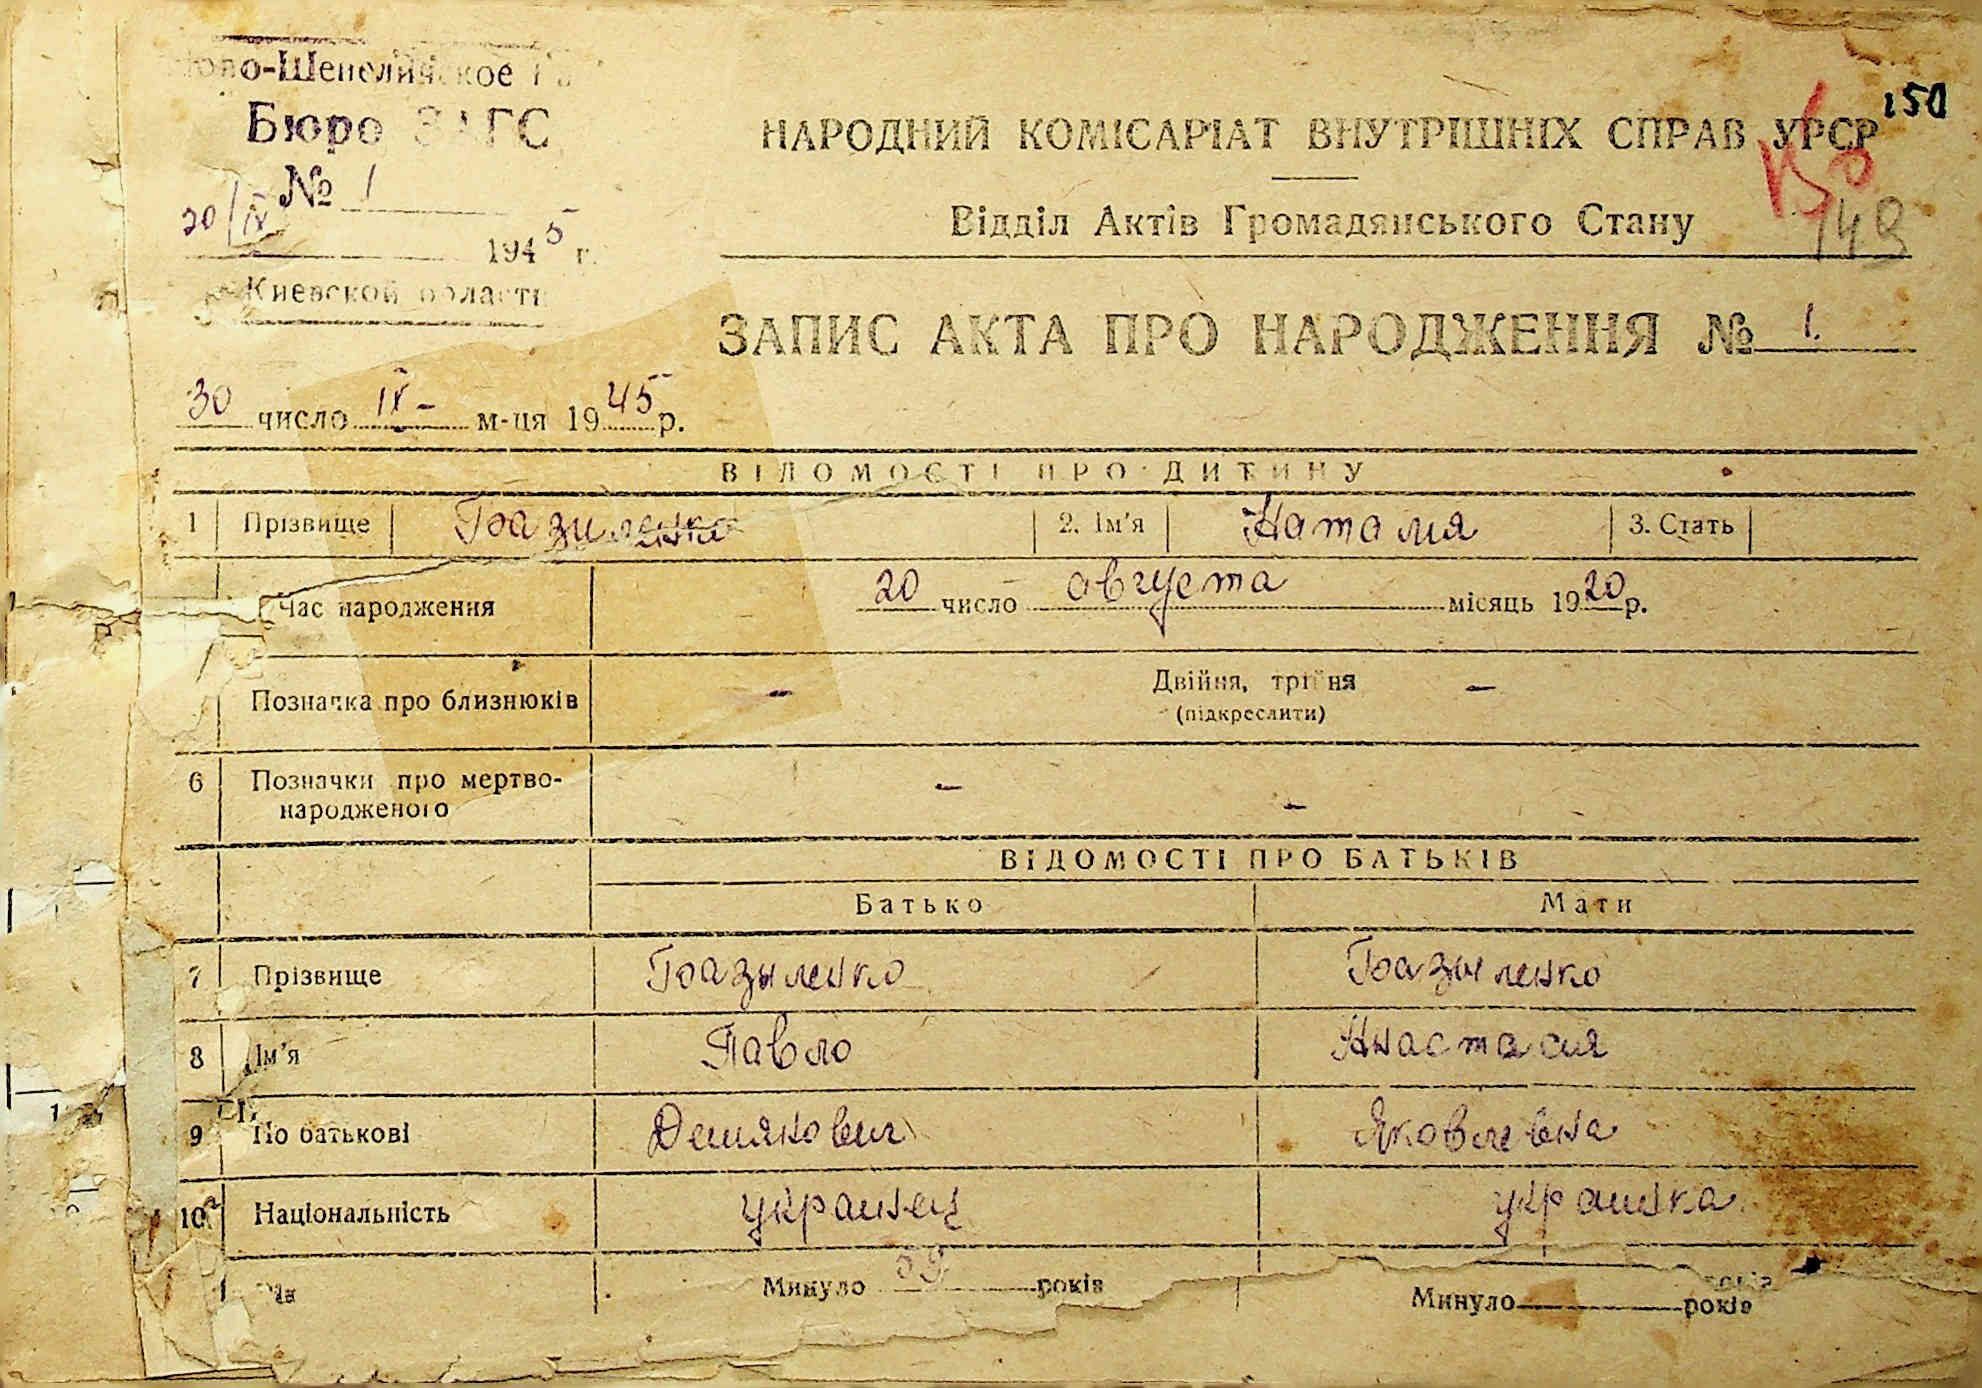 Ново-Шепеличское
Бюро ЗАГС
№ 1
150
НАРОДНИЙ КОМІСАРІАТ ВНУТРІШНІХ СПРАВ УРСР
150
149
Відділ Актів Громадянського Стану
20/IX 1945 г.
Киевской области
ЗАПИС АКТА ПРО НАРОДЖЕННЯ № 1.
30 число IX- м-ця 1945 р.
ВІДОМОСТІ ПРО ДИТИНУ
1 Прізвище Базиленко 2. Ім'я Наталия 3. Стать
Час народження 20 число августа місяць 1920 р.
Позначка про близнюків - Двійня, трійня -
(підкреслити)
6 Позначки про мертво-
народженого - -
ВІДОМОСТІ ПРО БАТЬКІВ
Батько Мати
7 Прізвище Базыленко Базыленко
8 Ім'я Павло Анастасия
9 По батькові Демянович Яковлевна
10 Національність украинец украинка
Минуло 59 років Минуло років